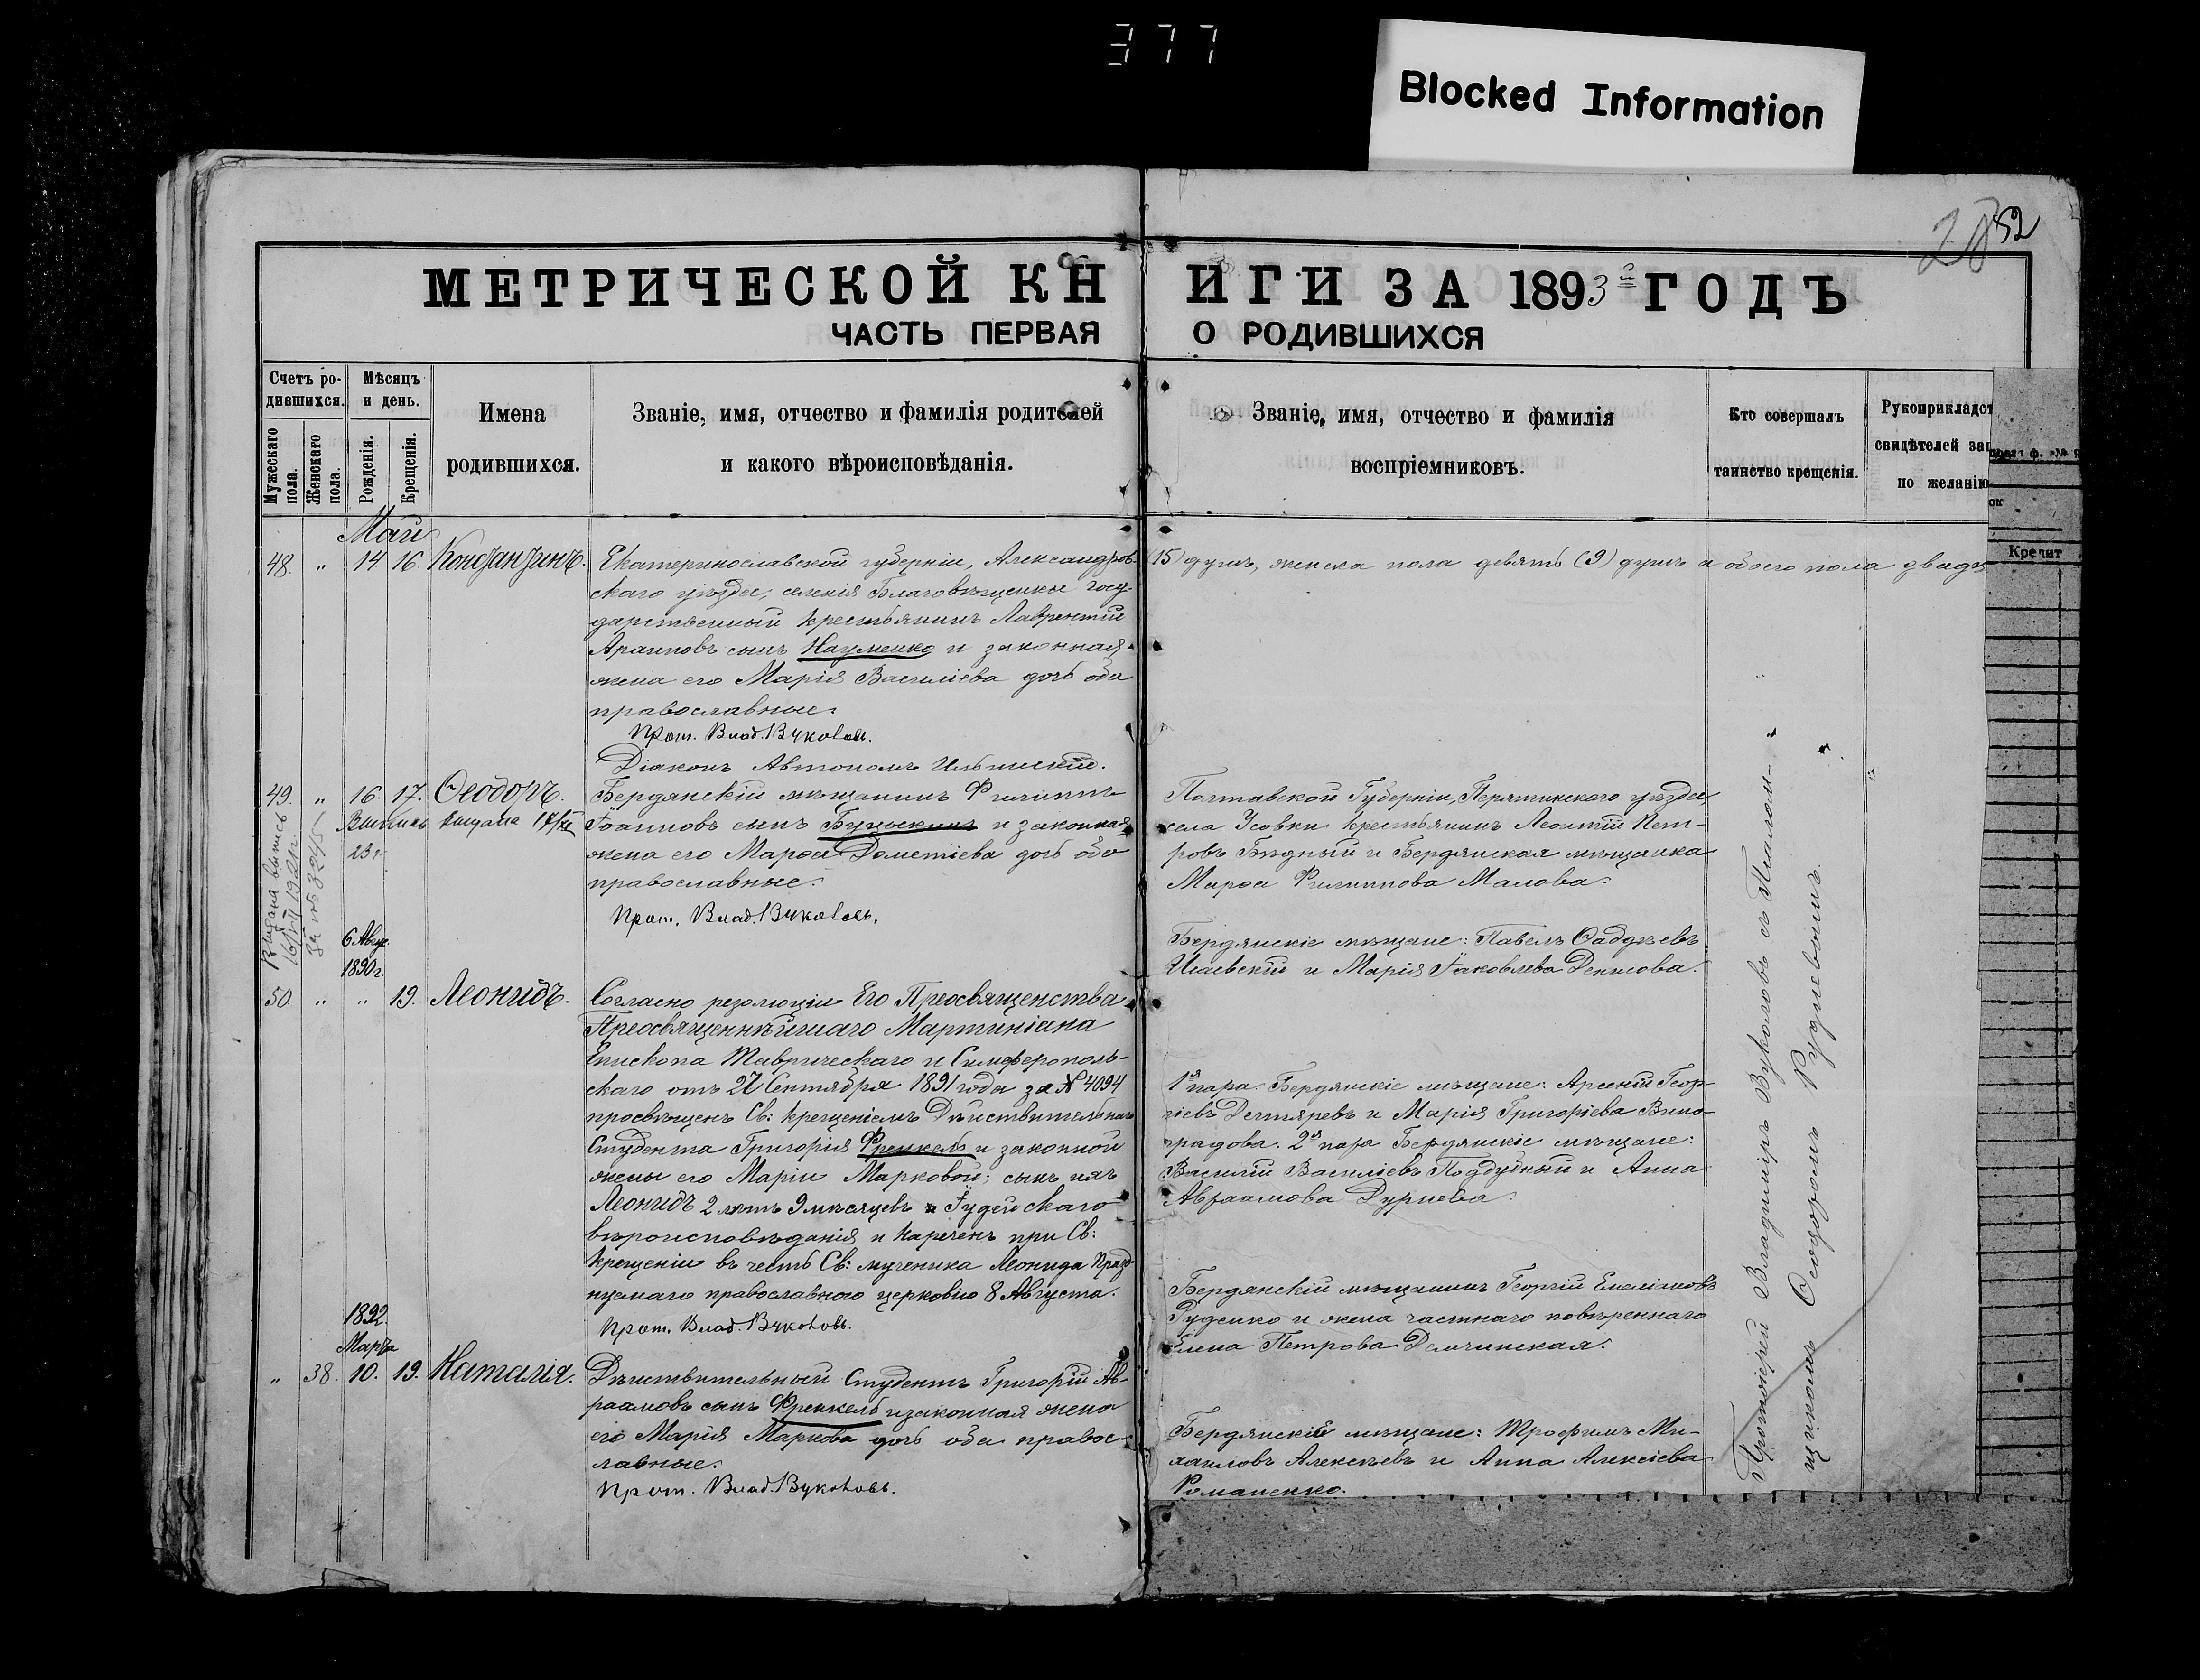 377
Blocked Information
28 52
МЕТРИЧЕСКОЙ КНИГИ ЗА 1893й ГОДЪ
ЧАСТЬ ПЕРВАЯ О РОДИВШИХСЯ
Счетъ ро-
дившихся.
Мужескаго пола.
Женскаго пола.
Мѣсяцъ
и день.
Рожденія.
Крещенія.
Имена
родившихся.
Званіе, имя, отчество и фамилія родителей
и какого вѣроисповѣданія.
Званіе, имя, отчество и фамилія
воспріемниковъ.
Кто совершалъ
таинство крещенія.
Рукоприкладст
свидѣтелей зап
по желанію
Кредит
Май
48. " 14 16. Константинъ.
Екатеринославской губерніи, Александров-
скаго уѣзда, селенія Благовѣщенки госу-
дарственный крестьянинъ Лаврентій
сынъ Науменко и законная
жена его Марія Василіева дочь оба
православные.
Прот. Влад. Вуколовъ.
Діаконъ Автономъ Ильинскій.
49. " 16. 17. Ѳеодоръ.
Выпись выдана
23 г.
Выдана выпись
1921 г.
за № 3245
Бердянскій мѣщанинъ Филиппъ
Іоанновъ сынъ и законная
жена его Марѳа Дометіева дочь оба
православные.
Прот. Влад. Вуколовъ.
6 Авгус.
1890 г.
50 " " 19. Леонидъ.
Согласно резолюціи Его Преосвященства
Преосвященнѣйшаго Мартиніана
Епископа Таврическаго и Симферополь-
скаго отъ 27 Сентября 1891 года за № 4094
просвѣщенъ Св: крещеніемъ Дѣйствительнаго
Студента Григорія Френкель и законной
жены его Маріи Марковой; сынъ ихъ
Леонидъ 2 лѣтъ 9 мѣсяцевъ Іудейскаго
вѣроисповѣданія и нареченъ при Св:
крещеніи въ честь Св: мученика Леонида празд-
нуемаго православною церковію 8 Августа.
Прот. Влад. Вуколовъ.
1892.
Марта
" 38. 10. 19. Наталія.
Дѣйствительный Студентъ Григорій Ав-
раамовъ сынъ Френкель и законная жена
его Марія Маркова дочь оба правос-
лавные.
Прот. Влад. Вуколовъ.
(15) душъ, женска пола девять (9) душъ а обоего пола двадц
Полтавской Губерніи, Пирятинскаго уѣзда,
села Усовки крестьянинъ Леонтій Пет-
ровъ Бѣдный и Бердянская мѣщанка
Марѳа Филиппова Малова.
Бердянскіе мѣщане: Павелъ Ѳаддѣевъ
и Марія Іаковлева Денисова.
1я пара. Бердянскіе мѣщане: Арсеній Геор-
гіевъ Дегтяревъ и Марія Григоріева Вино-
градова. 2я пара Бердянскіе мѣщане:
Василій Василіевъ Поддубный и Анна
Авраамова Дурнева.
Бердянскій мѣщанинъ Георгій Емеліановъ
Руденко и жена частнаго повѣреннаго
Елена Петрова Демчинская.
Бердянскіе мѣщане: Трофимъ Ми-
хаиловъ Алексѣевъ и Анна Алексіева
Романенко.
Протоіерей Владиміръ Вуколовъ съ Псалом-
щикомъ Ѳеодоромъ Рудневымъ.